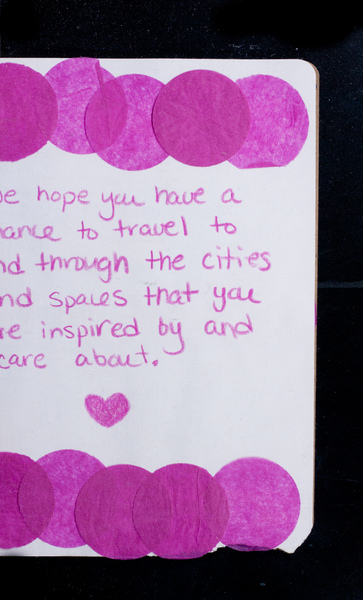 e hope you have a
ance to travel to
nd through the cities
nd spaces that you
re inspired by and
care about.